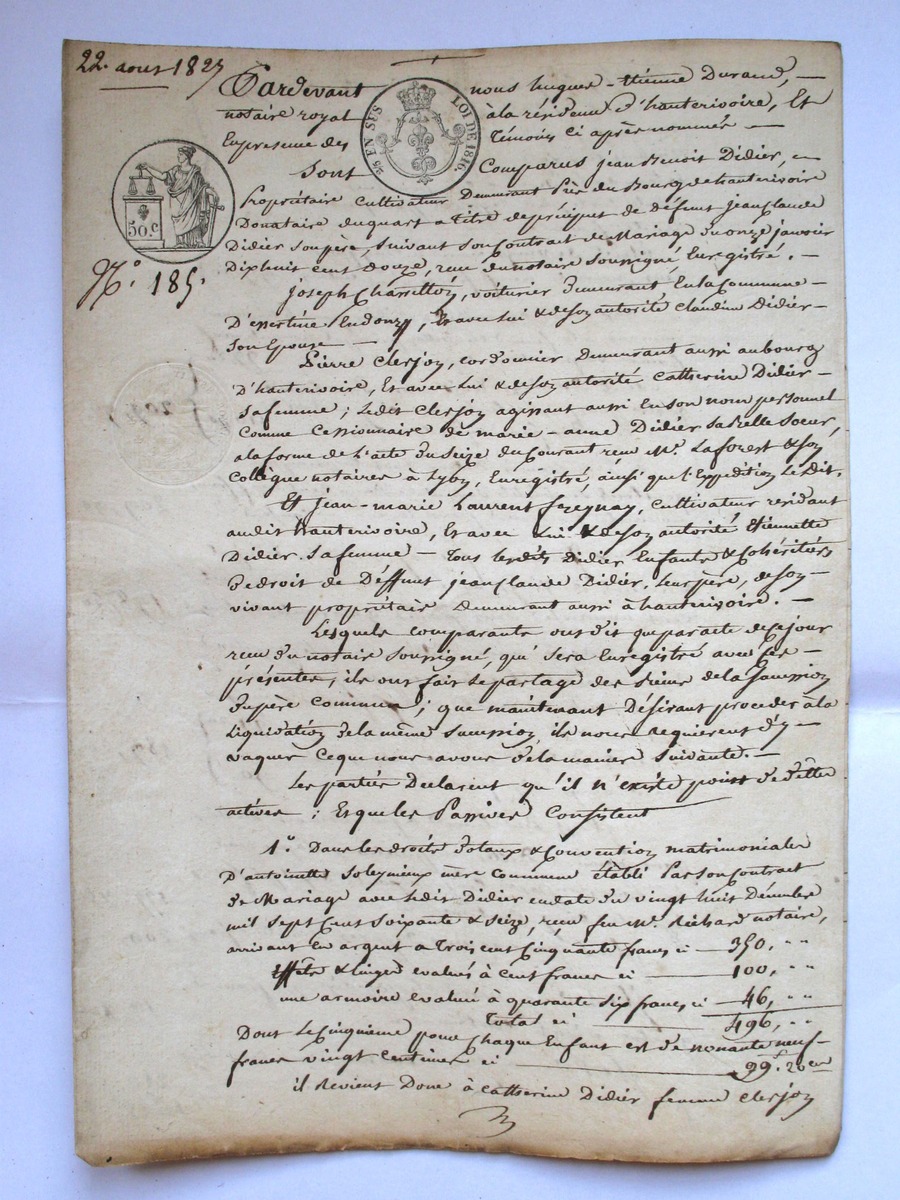 22. aout 1827
Pardevant nous hugues-étienne Durand,
notaire royal à la résidence d'hauterivoire, Et
En presence des témoins ci après nommés
25 EN SUS LOI DE 1816.
Sont Comparus jean Benoit Didier,
50.c
N.° 185.
Propriétaire cultivateur Demeurant Près du Bourg de hauterivoire
Donataire du quart a titre de préciput de défunt Jean Claude
Didier Son père, Suivant Son Contrat de Mariage du onze janvier
Dixhuit cent douze, recu du notaire Soussigné, Enregistré.
joseph, voiturier Demeurant En la Commune
D'essertine En donzy, Et avec lui & de Son autorité Claudine Didier
Son Epouse
Pierre Clerjon, cordonnier Demeurant aussi au bourg
D'hauterivoire, Et avec Lui & de Son autorité Catherine Didier
Sa femme ; Ledit Clerjon agissant aussi En Son nom personnel
Comme Cessionnaire de marie-anne Didier Sa Belle Soeur,
a la forme de l'acte du Seize du Courant recu M.e Laforest & Son
Collègue notaires à Lyon, Enregistré, ainsi que l'Expédition Le Dit.
Et jean-marie Laurent, Cultivateur residant
audit hauterivoire, Et avec Lui & de Son autorité Etiennette
Didier Sa femme - Tous lesdits Didier Enfants & Cohéritiers
De droit de Déffunt jean Claude Didier, Leur père, de Son
vivant propriétaire Demeurant aussi à hauterivoire.
Lesquels comparants ont dit que par acte de Ce jour
recu du notaire Soussigné, qui Sera Enregistré avec Ses
présentes, ils ont fait Le partage des Biens de la Succession
Du père Commun ; que maintenant Désirant proceder à la
Liquidation de la même Succession, ils nous Requierent d'y
vaquer Ce que nous avons de la maniere Suivante.
Les parties Declarent qu'il n'existe point de dettes
actives ; Et que les Passives Consistent
1.° Dans les droits Dotaux & Convention matrimoniales
D'antoinette Soleymieux mère Commune établi Par Son Contrat
de Mariage avec Ledit Didier en date du vingt huit Décembre
mil Sept Cent Soixante & Seize, reçu feu M.e Richard notaire,
arrivant En argent a Trois cent Cinquante francs ci 350, " "
Effets & linges évalués à Cent francs ci 100, " "
une armoire évalué à quarante Six francs ci 46, " "
Total ci 496, " "
Dont Le Cinquieme pour Chaque Enfant est de nonante neuf
francs vingt Centimes ci 99.f 20 cen
il Revient Donc à Catherine Didier femme Clerjon